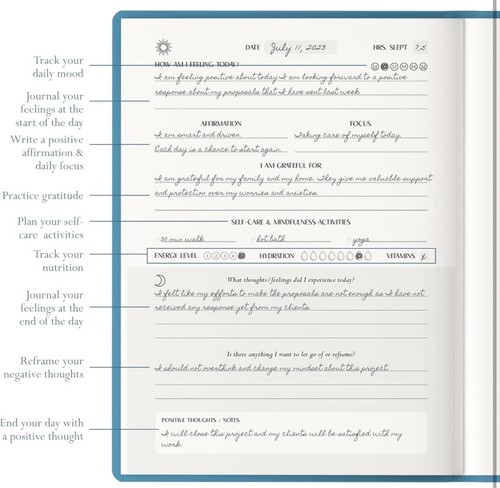 DATE July 11, 2023 HRS. SLEPT 7,5
Track your
daily mood
HOW AM I FEELING TODAY?
I am feeling positive about today. I am looking forward to a positive
response about my proposals that I have sent last week.
Journal your
feelings at the
start of the day
AFFIRMATION FOCUS
I am smart and driven. Taking care of myself today.
Each day is a chance to start again.
Write a positive
affirmation &
daily focus
I AM GRATEFUL FOR
I am grateful for my family and my home. They give me valuable support
and protection over my worries and anxieties.
Practice gratitude
SELF-CARE & MINDFULNESS ACTIVITIES
30 min walk hot bath yoga
Plan your self-
care activities
ENERGY LEVEL HYDRATION VITAMINS
Track your
nutrition
What thoughts/feelings did I experience today?
I felt like my efforts to make the proposals are not enough as I have not
received any response yet from my clients.
Journal your
feelings at the
end of the day
Is there anything I want to let go of or reframe?
I should not overthink and change my mindset about this project.
Reframe your
negative thoughts
POSITIVE THOUGHTS / NOTES
I will close this project and my clients will be satisfied with my
work.
End your day with
a positive thought